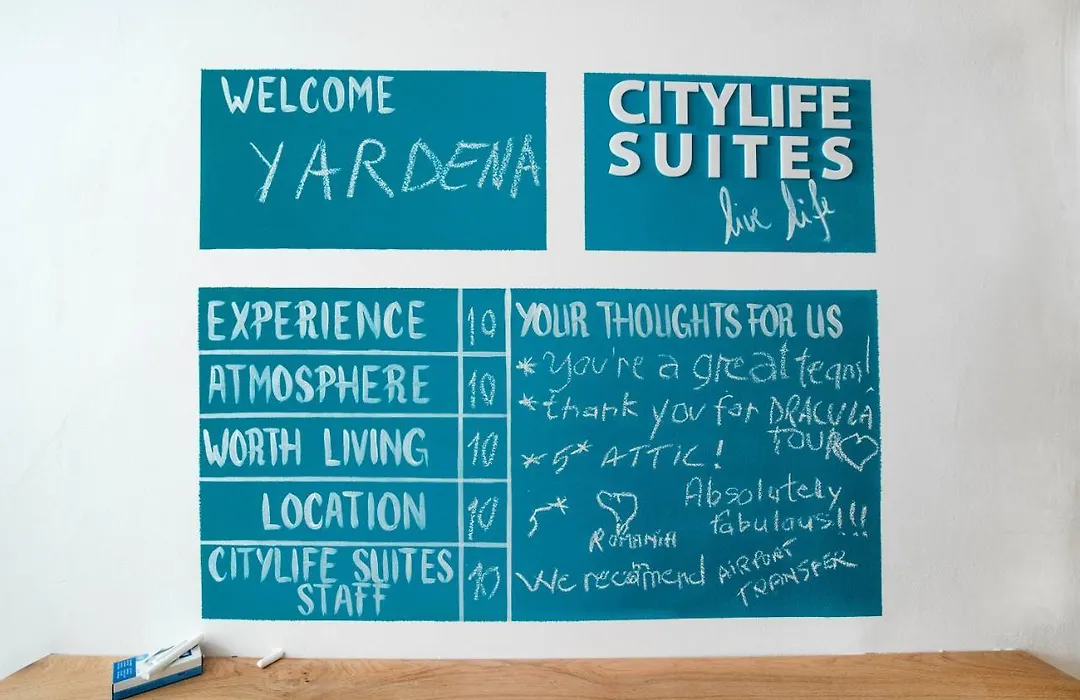 WELCOME
YARDENA
CITYLIFE
SUITES
live life
EXPERIENCE 10
ATMOSPHERE 10
WORTH LIVING 10
LOCATION 10
CITYLIFE SUITES
STAFF 10
YOUR THOUGHTS FOR US
* You're a great team!
* thank you for DRACULA
TOUR
* 5* ATTIC!
5* Absolutely
fabulous!!!
ROMANIA
We recomend AIRPORT
TRANSFER